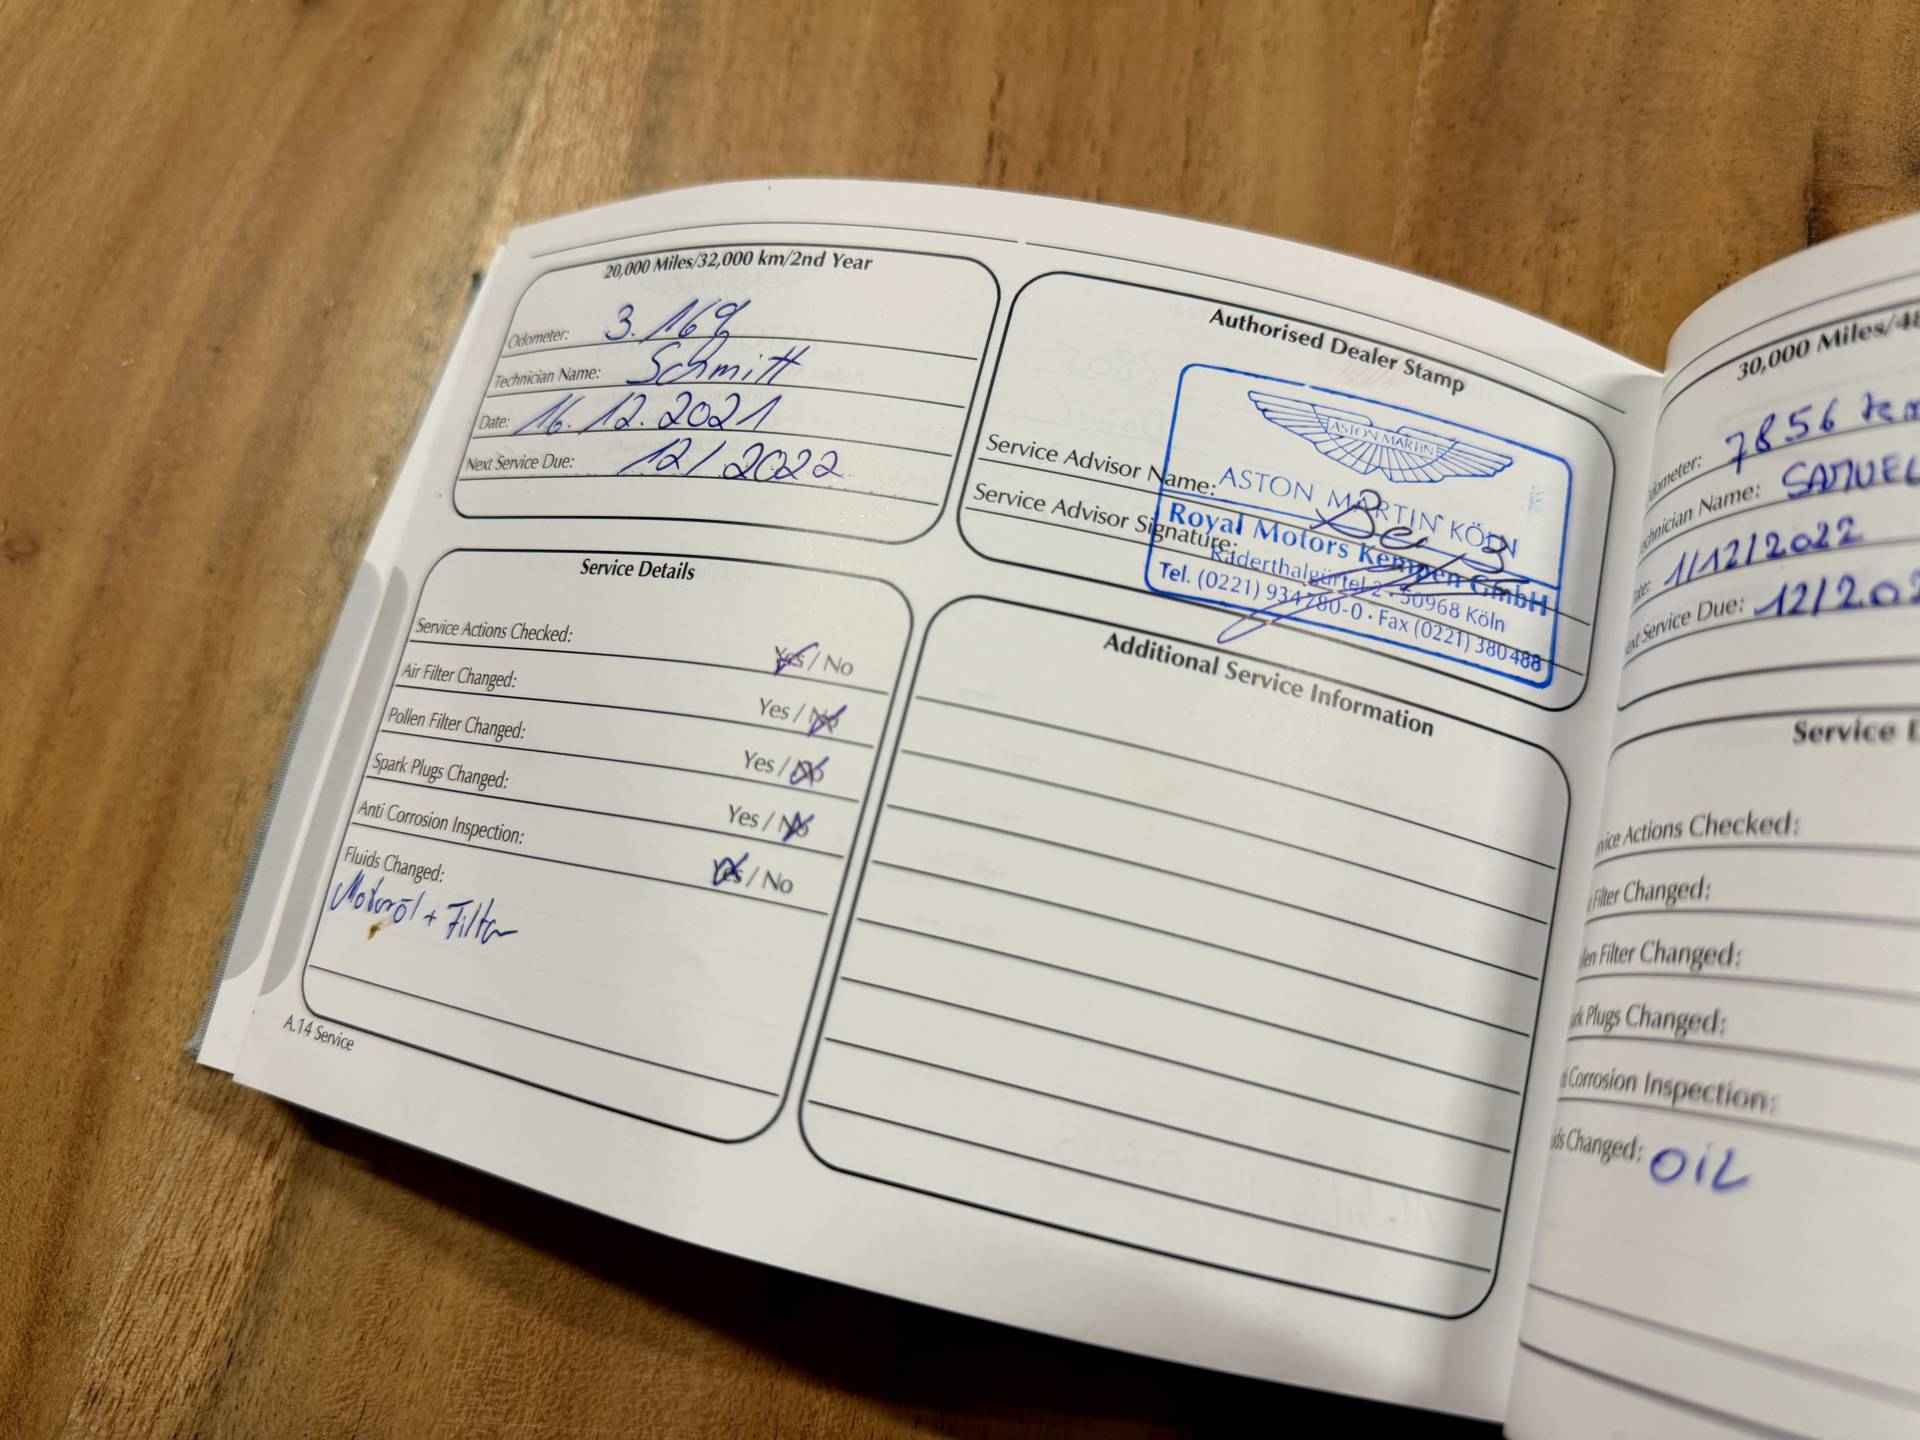 20,000 Miles/32,000 km/2nd Year
Odometer: 3.169
Technician Name: Schmitt
Date: 16.12.2021
Next Service Due: 12/2022
Authorised Dealer Stamp
ASTON MARTIN
Service Advisor Name:
ASTON MARTIN KÖLN
Service Advisor Signature:
Royal Motors Kempen GmbH
Raderthalgürtel 2 · 50968 Köln
Tel. (0221) 934780-0 · Fax (0221) 380 488
Service Details
Service Actions Checked: Yes / No
Air Filter Changed: Yes / No
Pollen Filter Changed: Yes / No
Spark Plugs Changed: Yes / No
Anti Corrosion Inspection: Yes / No
Fluids Changed:
Motoröl + Filter
Additional Service Information
A.14 Service
30,000 Miles/48
ometer: 7856 km
chnician Name: SAMUEL
te: 1/12/2022
ext Service Due: 12/202
Service D
vice Actions Checked:
Filter Changed:
len Filter Changed:
rk Plugs Changed:
Corrosion Inspection:
ids Changed: OIL